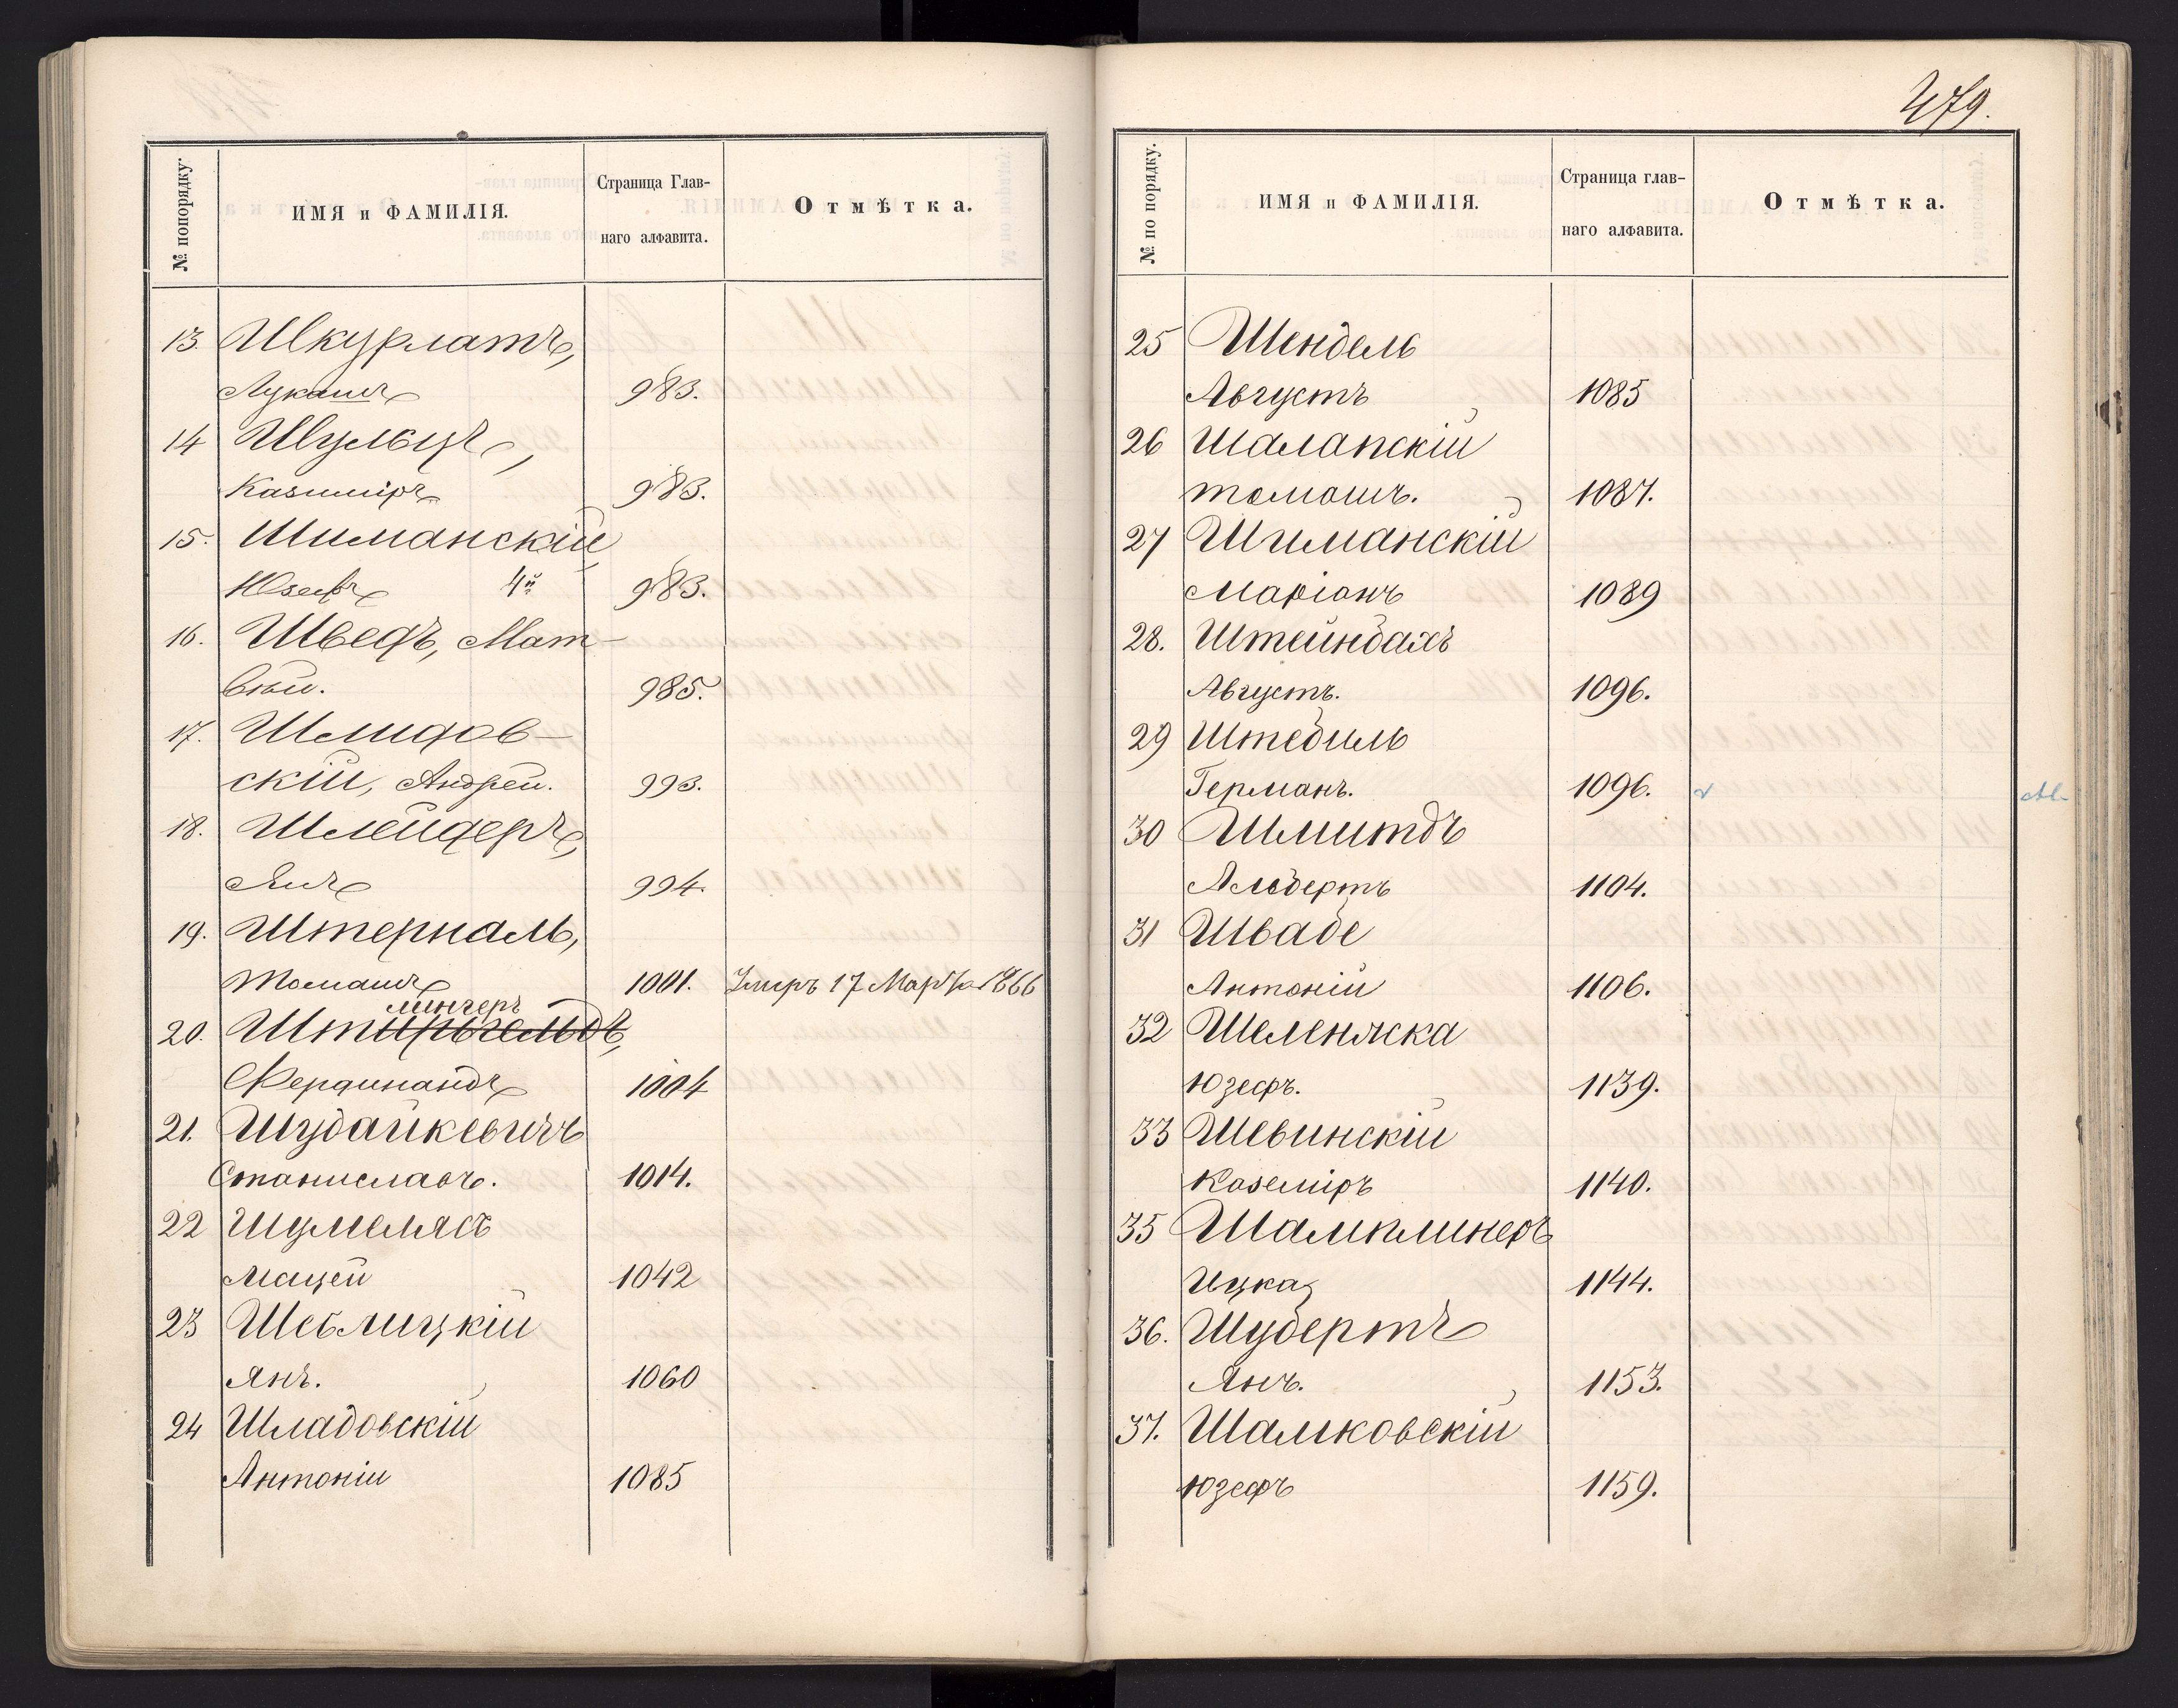 № попорядку.
ИМЯ и ФАМИЛІЯ.
Страница Глав-
наго алфавита.
Отмѣтка.
13. Шкурлатъ,
Лукашъ 983.
14 Шульцъ,
Казиміръ 983.
15. Шиманскій,
Юзефъ 4й 983.
16. Шведъ, Мат-
вѣй. 985.
17. Шмидов-
скій, Андрей. 993.
18. Шлейдеръ,
Янъ 994.
19. Штерналь,
Томашъ 1001. Умеръ 17 Марта 1866
лингеръ
20. Штирьгельдъ,
Фердинандъ 1004
21. Шудайкевичъ
Станиславъ. 1014.
22 Шумелясъ
Мацей 1042
23 Шеблицкій
Янъ. 1060
24 Шладовскій
Антоній 1085
479.
№ по порядку.
ИМЯ и ФАМИЛІЯ.
Страница глав-
наго алфавита.
Отмѣтка.
25 Шендель
Августъ 1085
26 Шалапскій
томашъ. 1087.
27 Шиманскій
Маріанъ 1089
28. Штейнбахъ
Августъ. 1096.
29 Штебиль
Германъ. 1096.
30 Шмитдъ
Альбертъ 1104.
31 Швабе
Антоній 1106.
32 Шеленяска
Юзефъ. 1139.
33 Шевинскій
Каземіръ 1140.
35 Шамплинеръ
Ицка 1144.
36. Шубертъ
Янъ. 1153.
37. Шамковскій
Юзефъ 1159.